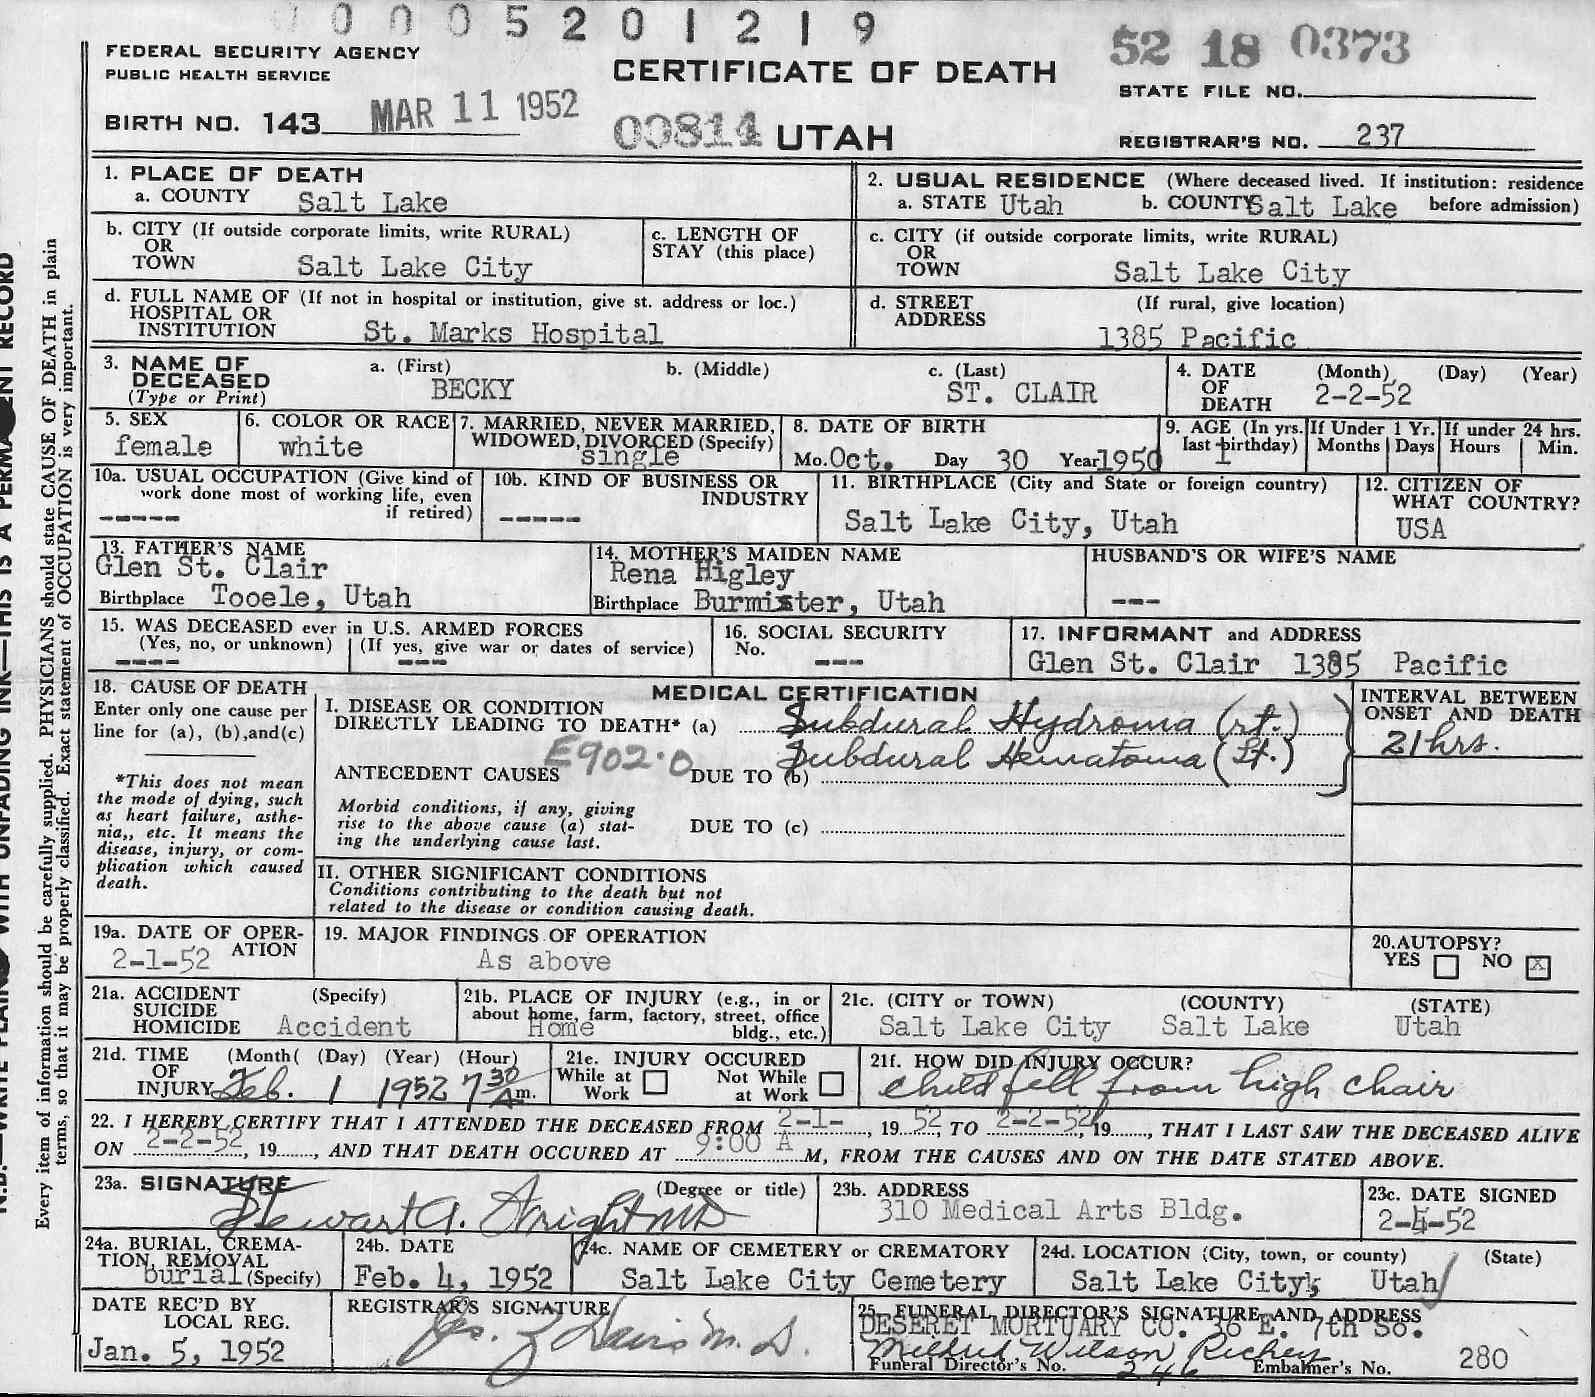 0 0 0 5 2 0 1 2 1 9
FEDERAL SECURITY AGENCY
PUBLIC HEALTH SERVICE
CERTIFICATE OF DEATH
52 18 0373
STATE FILE NO.
BIRTH NO. 143 MAR 11 1952
00814 UTAH
REGISTRAR'S NO. 237
N.B.—WRITE PLAINLY WITH UNFADING INK—THIS IS A PERMANENT RECORD
Every item of information should be carefully supplied. PHYSICIANS should state CAUSE OF DEATH in plain
terms, so that it may be properly classified. Exact statement of OCCUPATION is very important.
1. PLACE OF DEATH
a. COUNTY Salt Lake
2. USUAL RESIDENCE (Where deceased lived. If institution: residence
a. STATE Utah b. COUNTY Salt Lake before admission)
b. CITY (If outside corporate limits, write RURAL)
OR
TOWN Salt Lake City
c. LENGTH OF
STAY (this place)
c. CITY (if outside corporate limits, write RURAL)
OR
TOWN Salt Lake City
d. FULL NAME OF (If not in hospital or institution, give st. address or loc.)
HOSPITAL OR
INSTITUTION St. Marks Hospital
d. STREET (If rural, give location)
ADDRESS
1385 Pacific
3. NAME OF
DECEASED
(Type or Print)
a. (First) b. (Middle) c. (Last)
BECKY ST. CLAIR
4. DATE (Month) (Day) (Year)
OF
DEATH 2-2-52
5. SEX
female
6. COLOR OR RACE
white
7. MARRIED, NEVER MARRIED,
WIDOWED, DIVORCED (Specify)
single
8. DATE OF BIRTH
Mo. Oct. Day 30 Year 1950
9. AGE (In yrs.
last birthday)
1
If Under 1 Yr.
Months Days
If under 24 hrs.
Hours Min.
10a. USUAL OCCUPATION (Give kind of
work done most of working life, even
if retired)
-----
10b. KIND OF BUSINESS OR
INDUSTRY
-----
11. BIRTHPLACE (City and State or foreign country)
Salt Lake City, Utah
12. CITIZEN OF
WHAT COUNTRY?
USA
13. FATHER'S NAME
Glen St. Clair
Birthplace Tooele, Utah
14. MOTHER'S MAIDEN NAME
Rena Higley
Birthplace Burmister, Utah
HUSBAND'S OR WIFE'S NAME
---
15. WAS DECEASED ever in U.S. ARMED FORCES
(Yes, no, or unknown) (If yes, give war or dates of service)
---- ---
16. SOCIAL SECURITY
No.
---
17. INFORMANT and ADDRESS
Glen St. Clair 1385 Pacific
18. CAUSE OF DEATH
Enter only one cause per
line for (a), (b), and (c)
*This does not mean
the mode of dying, such
as heart failure, asthe-
nia,, etc. It means the
disease, injury, or com-
plication which caused
death.
MEDICAL CERTIFICATION
I. DISEASE OR CONDITION
DIRECTLY LEADING TO DEATH* (a) Subdural Hydroma (rt.)
E902.0 Subdural Hematoma (Lt.)
ANTECEDENT CAUSES DUE TO (b)
Morbid conditions, if any, giving
rise to the above cause (a) stat-
ing the underlying cause last.
DUE TO (c)
INTERVAL BETWEEN
ONSET AND DEATH
21 hrs.
II. OTHER SIGNIFICANT CONDITIONS
Conditions contributing to the death but not
related to the disease or condition causing death.
19a. DATE OF OPER-
ATION
2-1-52
19. MAJOR FINDINGS OF OPERATION
As above
20. AUTOPSY?
YES NO X
21a. ACCIDENT (Specify)
SUICIDE
HOMICIDE Accident
21b. PLACE OF INJURY (e.g., in or
about home, farm, factory, street, office
bldg., etc.)
Home
21c. (CITY or TOWN) (COUNTY) (STATE)
Salt Lake City Salt Lake Utah
21d. TIME (Month( (Day) (Year) (Hour)
OF
INJURY Feb. 1 1952 7 30 A m.
21e. INJURY OCCURED
While at Work Not While at Work
21f. HOW DID INJURY OCCUR?
child fell from high chair
22. I HEREBY CERTIFY THAT I ATTENDED THE DECEASED FROM 2-1-, 19 52, TO 2-2-52, 19, THAT I LAST SAW THE DECEASED ALIVE
ON 2-2-52, 19, AND THAT DEATH OCCURED AT 9:00 A M, FROM THE CAUSES AND ON THE DATE STATED ABOVE.
23a. SIGNATURE (Degree or title)
Stewart A. Wright MD
23b. ADDRESS
310 Medical Arts Bldg.
23c. DATE SIGNED
2-4-52
24a. BURIAL, CREMA-
TION, REMOVAL
burial (Specify)
24b. DATE
Feb. 4, 1952
24c. NAME OF CEMETERY or CREMATORY
Salt Lake City Cemetery
24d. LOCATION (City, town, or county) (State)
Salt Lake City, Utah
DATE REC'D BY
LOCAL REG.
Jan. 5, 1952
REGISTRAR'S SIGNATURE
Davis M. D.
25. FUNERAL DIRECTOR'S SIGNATURE AND ADDRESS
DESERET MORTUARY CO. 36 E. 7th So.
Mildred Wilson Richey
Funeral Director's No. 246 Embalmer's No. 280